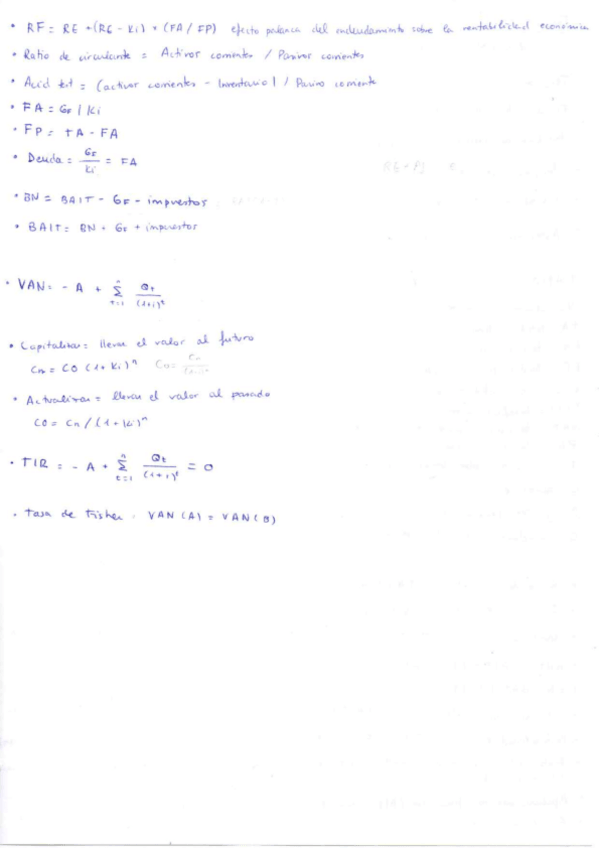 • RF = RE + (RE - Ki) * (FA / FP) efecto palanca del endeudamiento sobre la rentabilidad económica
• Ratio de circulante = Activos corrientes / Pasivos corrientes
• Acid test = (activos corrientes - Inventario) / Pasivo corriente
• FA = GF / Ki
• FP = TA - FA
• Deuda = GF / Ki = FA
• BN = BAIT - GF - impuestos
• BAIT = BN + GF + impuestos
• VAN = - A + Σ(t=1, n) Qt / (1+i)^t
• Capitalizar = llevar el valor al futuro
Cn = C0 (1 + Ki)^n C0 = Cn
• Actualizar = llevar el valor al pasado
C0 = Cn / (1 + Ki)^n
• TIR = - A + Σ(t=1, n) Qt / (1+i)^t = 0
• Tasa de Fisher. VAN (A) = VAN (B)